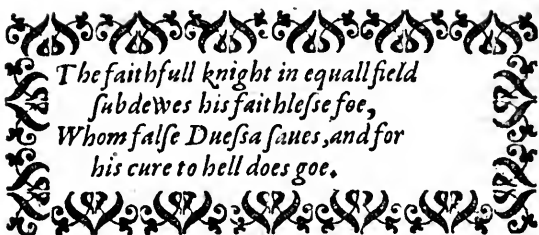 The faithfull knight in equall field
ſubdewes his faithleſſe foe,
Whom falſe Dueſſa ſaues, and for
his cure to hell does goe.